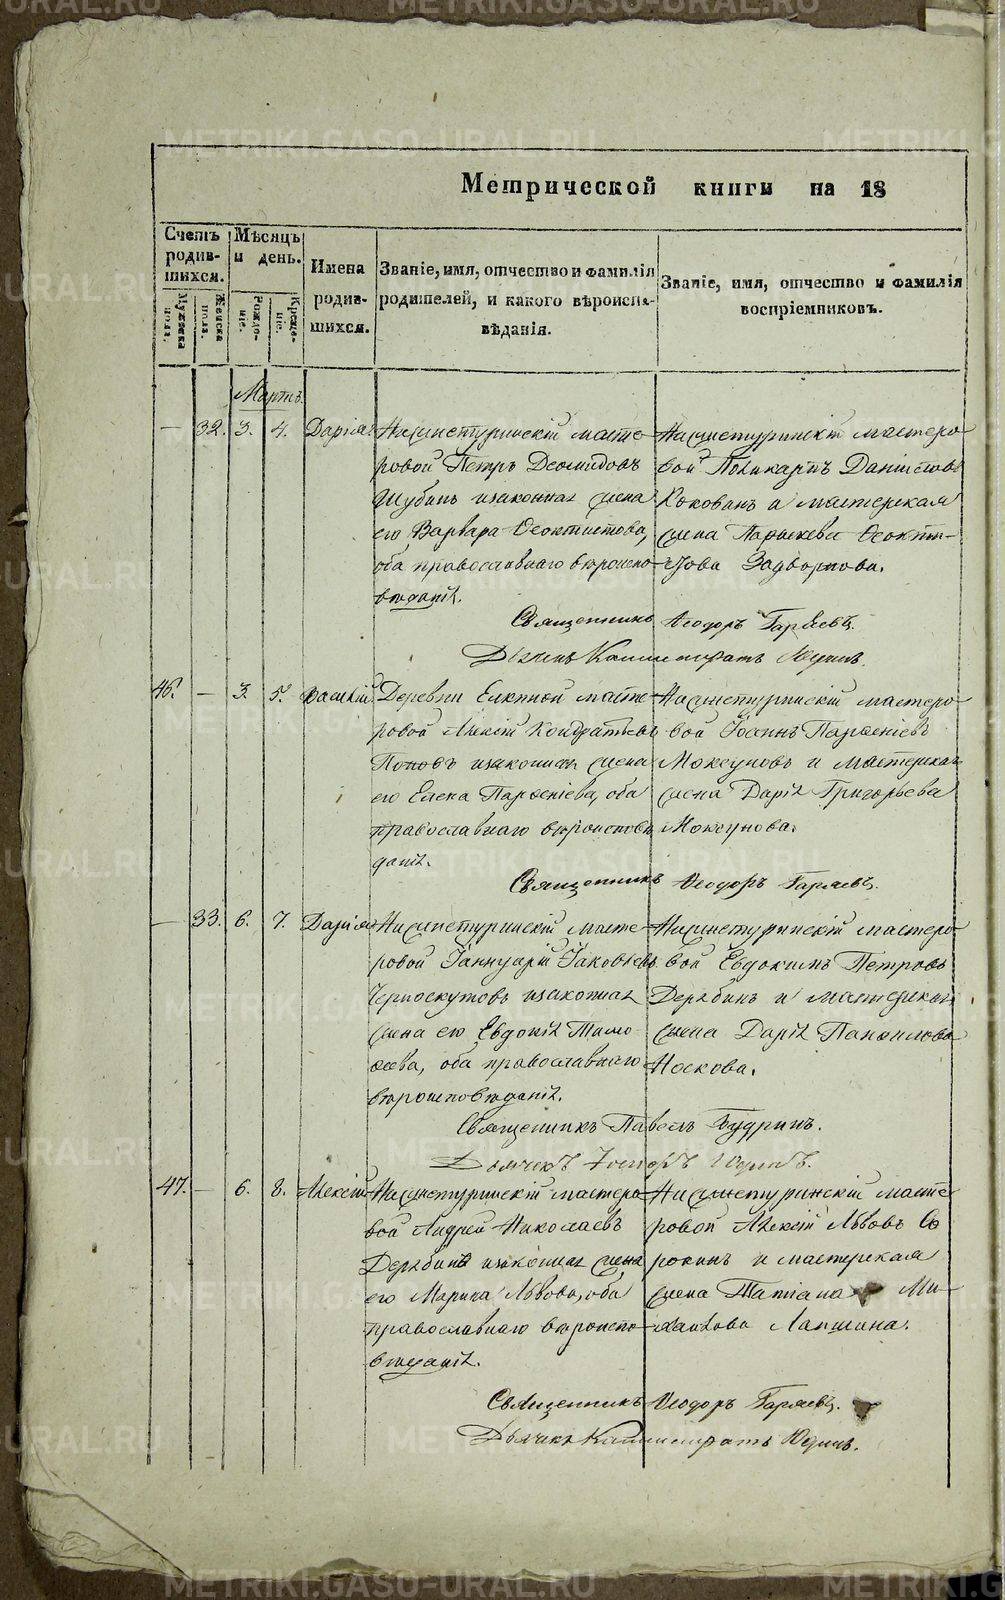 METRIKI.GASO-URAL.RU
Метрической книги на 18
Счетъ родив-шихся.
Мужска пола.
Женска пола.
Мѣсяцъ и день.
Рожде-ніе.
Креще-ніе.
Имена родив-шихся.
Званіе, имя, отчество и фамилія родителей, и какого вѣроиспо-вѣданія.
Званіе, имя, отчество и фамилія воспріемниковъ.
Мартъ.
— 32. 3. 4. Дарія
Нижнетуринскій масте-
ровой Петръ Деомидовъ
Шубинъ и законная жена
его Варвара Ѳеоктистова,
оба православнаго вѣроиспо-
вѣданія.
Нижнетуринскій мастеро-
вой Поликарпъ Даніиловъ
Коковинъ и мастерская
жена Параскева Ѳеокти-
стова Задворнова.
Священникъ Ѳеодоръ Гаряевъ.
Дьячекъ Каллистратъ Юдинъ.
46. — 3. 5. Василій
Деревни Елкиной масте-
ровой Алексій Кондратьевъ
Поповъ и законная жена
его Елена Парѳеніева, оба
православнаго вѣроисповѣ-
данія.
Нижнетуринскій мастеро-
вой Іоаннъ Парѳеніевъ
Моксуновъ и мастерская
жена Дарія Григорьева
Моксунова.
Священникъ Ѳеодоръ Гаряевъ.
— 33. 6. 7. Дарія
Нижнетуринскій масте-
ровой Іаннуарій Іаковлевъ
Черноскутовъ и законная
жена его Евдокія Тимо-
ѳеева, оба православнаго
вѣроисповѣданія.
Нижнетуринскій мастеро-
вой Евдокимъ Петровъ
Дерябинъ и мастерская
жена Дарія Панфилова
Носкова.
Священникъ Павелъ Будринъ.
Дьячекъ
47. — 6. 8. Алексій
Нижнетуринскій мастеро-
вой Андрей Николаевъ
Дерябинъ и законная жена
его Марина Львова, оба
православнаго вѣроиспо-
вѣданія.
Нижнетуринскій масте-
ровой Алексій Львовъ Со
рокинъ и мастерская
жена Татіана Ми-
хаилова Лапшина.
Священникъ Ѳеодоръ Гаряевъ.
Дьячекъ Каллистратъ Юдинъ.